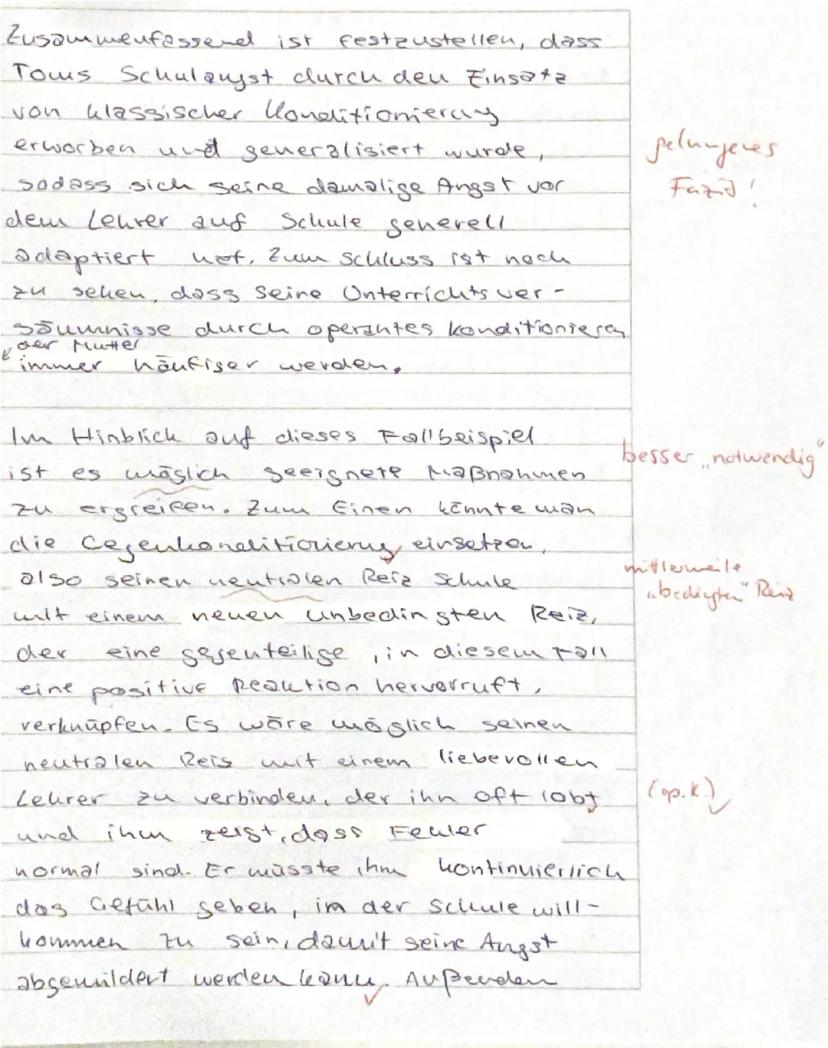 Zusammenfassend ist festzustellen, dass
Toms Schulangst durch den Einsatz
von klassischer Konditionierung
erworben und generalisiert wurde,
gelungenes
sodass sich seine damalige Angst vor
Fazit!
dem Lehrer auf Schule generell
adaptiert hat. Zum Schluss ist noch
zu sehen, dass seine Unterrichtsver-
säumnisse durch operantes Konditionieren
der Mutter
immer häufiger werden.
Im Hinblick auf dieses Fallbeispiel
besser „notwendig"
ist es möglich geeignete Maßnahmen
zu ergreifen. Zum Einen könnte man
die Gegenkonditionierung einsetzen,
mittlerweile
also seinen neutralen Reiz Schule
„bedingten" Reiz
mit einem neuen unbedingten Reiz,
der eine gegenteilige, in diesem Fall
eine positive Reaktion hervorruft,
verknüpfen. Es wäre möglich seinen
neutralen Reis mit einem liebevollen
Lehrer zu verbinden, der ihn oft lobt
(op. K.)
und ihm zeigt, dass Fehler
normal sind. Er müsste ihm kontinuierlich
das Gefühl geben, in der Schule will-
kommen zu sein, damit seine Angst
abgemildert werden kann. Außerdem